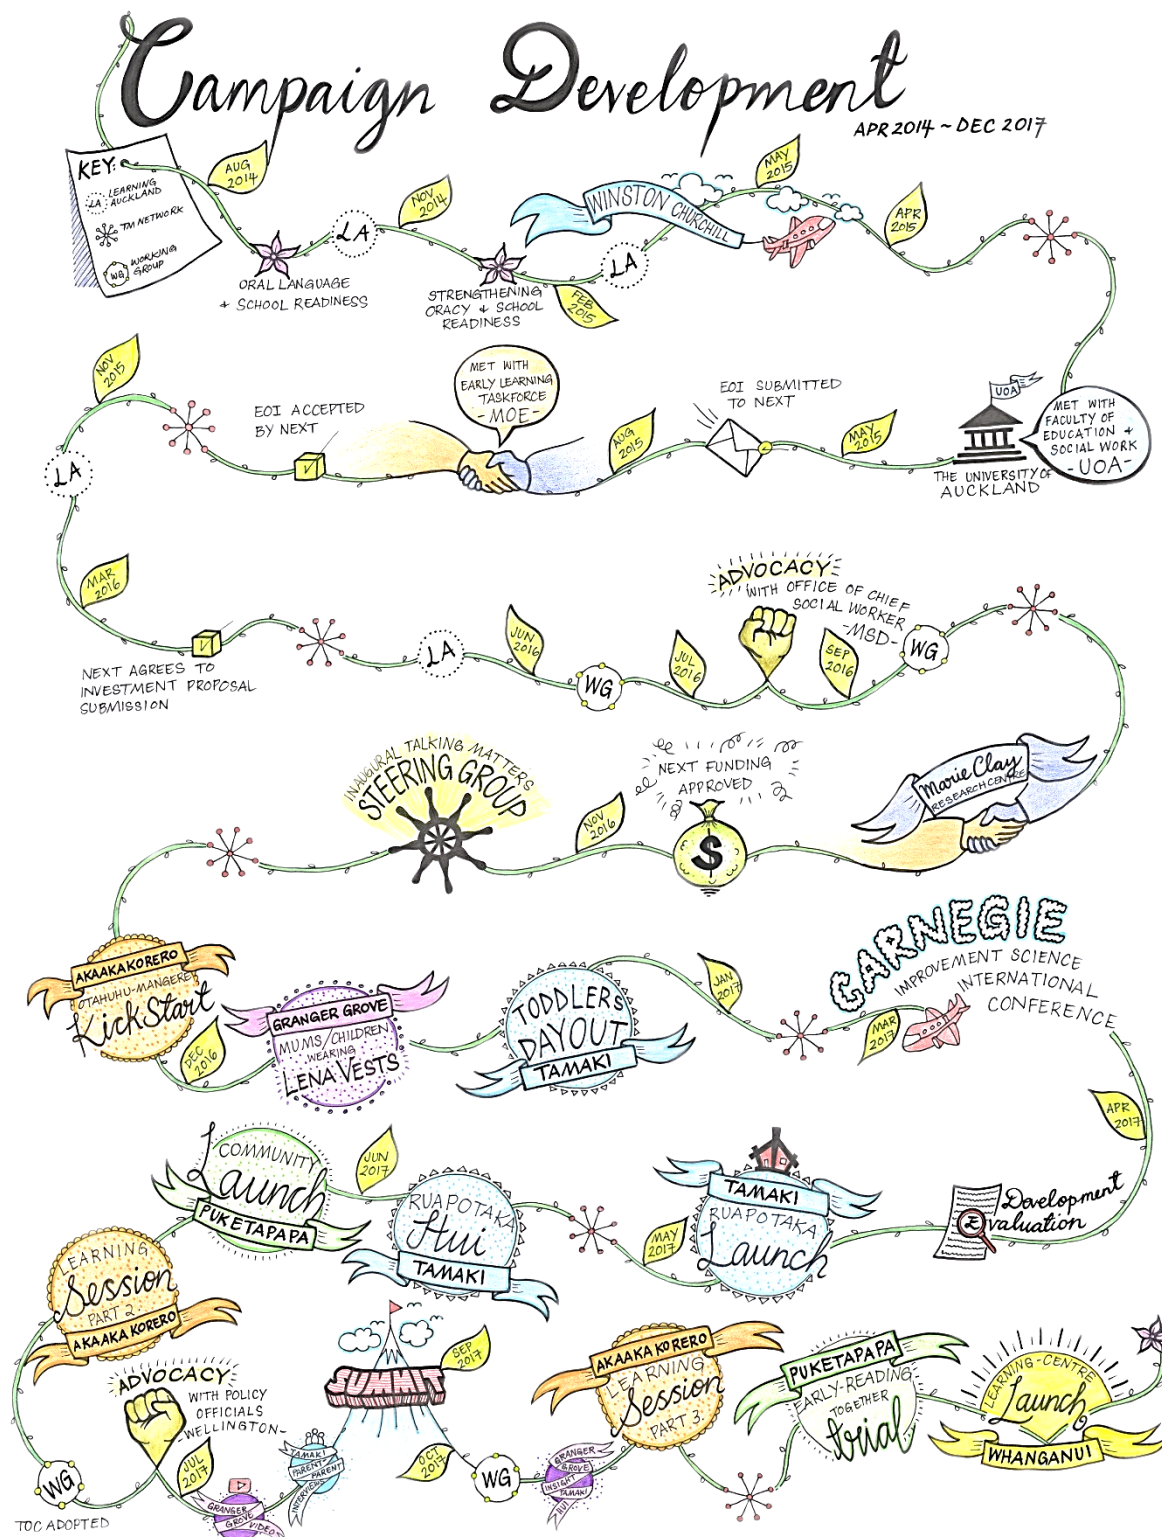 Campaign Development
APR 2014 ~ DEC 2017
KEY:
LA LEARNING
AUCKLAND
TM NETWORK
WG WORKING
GROUP
AUG
2014
ORAL LANGUAGE
& SCHOOL READINESS
LA
NOV
2014
STRENGTHENING
ORACY & SCHOOL
READINESS
FEB
2015
LA
WINSTON CHURCHILL
MAY
2015
APR
2015
MET WITH
FACULTY OF
EDUCATION &
SOCIAL WORK
-UOA-
UOA
THE UNIVERSITY OF
AUCKLAND
MAY
2015
EOI SUBMITTED
TO NEXT
AUG
2015
MET WITH
EARLY LEARNING
TASKFORCE
-MOE-
EOI ACCEPTED
BY NEXT
NOV
2015
LA
MAR
2016
NEXT AGREES TO
INVESTMENT PROPOSAL
SUBMISSION
LA
JUN
2016
WG
JUL
2016
ADVOCACY
WITH OFFICE OF CHIEF
SOCIAL WORKER
-MSD-
SEP
2016
WG
Marie Clay
RESEARCH CENTRE
NEXT FUNDING
APPROVED
$
NOV
2016
INAUGURAL TALKING MATTERS
STEERING GROUP
AKAAKAKORERO
OTAHUHU-MANGERE
KickStart
DEC
2016
GRANGER GROVE
MUMS/CHILDREN
WEARING
LENA VESTS
TODDLERS
DAYOUT
TAMAKI
JAN
2017
MAR
2017
CARNEGIE
IMPROVEMENT SCIENCE
INTERNATIONAL
CONFERENCE
APR
2017
Development
Evaluation
TAMAKI
RUAPOTAKA
Launch
MAY
2017
RUAPOTAKA
Hui
TAMAKI
JUN
2017
COMMUNITY
Launch
PUKETAPAPA
LEARNING
Session
PART 2
AKAAKA KORERO
WG
TOC ADOPTED
ADVOCACY
WITH POLICY
OFFICIALS
-WELLINGTON-
JUL
2017
GRANGER
GROVE VIDEO
TAMAKI
PARENT-
PARENT
INTERVIEWS
SUMMIT
SEP
2017
OCT
2017
WG
GRANGER
GROVE
INSIGHT
TAMAKI
HUI
AKAAKA KORERO
LEARNING
Session
PART 3
PUKETAPAPA
EARLY-READING
TOGETHER
trial
LEARNING-CENTRE
Launch
WHANGANUI